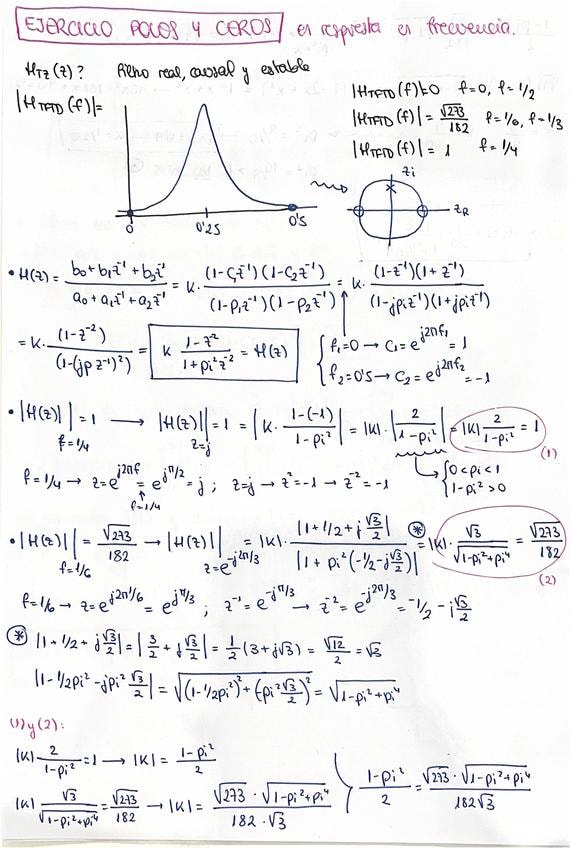 EJERCICIO POLOS Y CEROS en respuesta en frecuencia.
H_TZ(z)? Filtro real, causal y estable
|H_TFTD(f)|=
|H_TFTD(f)|=0 f=0, f=1/2
|H_TFTD(f)| = √273/182 f=1/6, f=1/3
|H_TFTD(f)| = 1 f=1/4
0 0'25 0'5
zi
zR
• H(z) = (b0+b1z⁻¹+b2z⁻¹)/(a0+a1z⁻¹+a2z⁻¹) = K· (1-C1z⁻¹)(1-C2z⁻¹)/((1-p1z⁻¹)(1-p2z⁻¹)) = K· (1-z⁻¹)(1+z⁻¹)/((1-jpiz⁻¹)(1+jpiz⁻¹))
= K· (1-z⁻²)/(1-(jpz⁻¹)²) = K (1-z⁻²)/(1+pi²z⁻²) = H(z)
f1=0 → C1=e^(j2πf1) = 1
f2=0'5 → C2=e^(j2πf2) = -1
• |H(z)| f=1/4 = 1 → |H(z)| z=j = 1 = |K· (1-(-1))/(1-pi²)| = |K|·|2/(1-pi²)| = |K| 2/(1-pi²) = 1
(1)
f=1/4 → z=e^(j2πf) = e^(jπ/2) = j ; z=j → z²=-1 → z⁻²=-1
f=1/4
0<pi<1
1-pi²>0
• |H(z)| f=1/6 = √273/182 → |H(z)| z=e^(-j2π/3) = |K|· |1+1/2+j√3/2|/|1+pi²(-1/2-j√3/2)| (*)= |K|· √3/√(1-pi²+pi⁴) = √273/182
(2)
f=1/6 → z=e^(j2π1/6) = e^(jπ/3) ; z⁻¹=e^(-jπ/3) → z⁻²=e^(-j2π/3) = -1/2-j√3/2
(*) |1+1/2+j√3/2| = |3/2+j√3/2| = 1/2(3+j√3) = √12/2 = √3
|1-1/2pi²-jpi²√3/2| = √((1-1/2pi²)²+(-pi²√3/2)²) = √(1-pi²+pi⁴)
(1) y (2):
|K| 2/(1-pi²) = 1 → |K| = (1-pi²)/2
|K| √3/√(1-pi²+pi⁴) = √273/182 → |K| = √273·√(1-pi²+pi⁴)/(182·√3)
(1-pi²)/2 = √273·√(1-pi²+pi⁴)/(182√3)